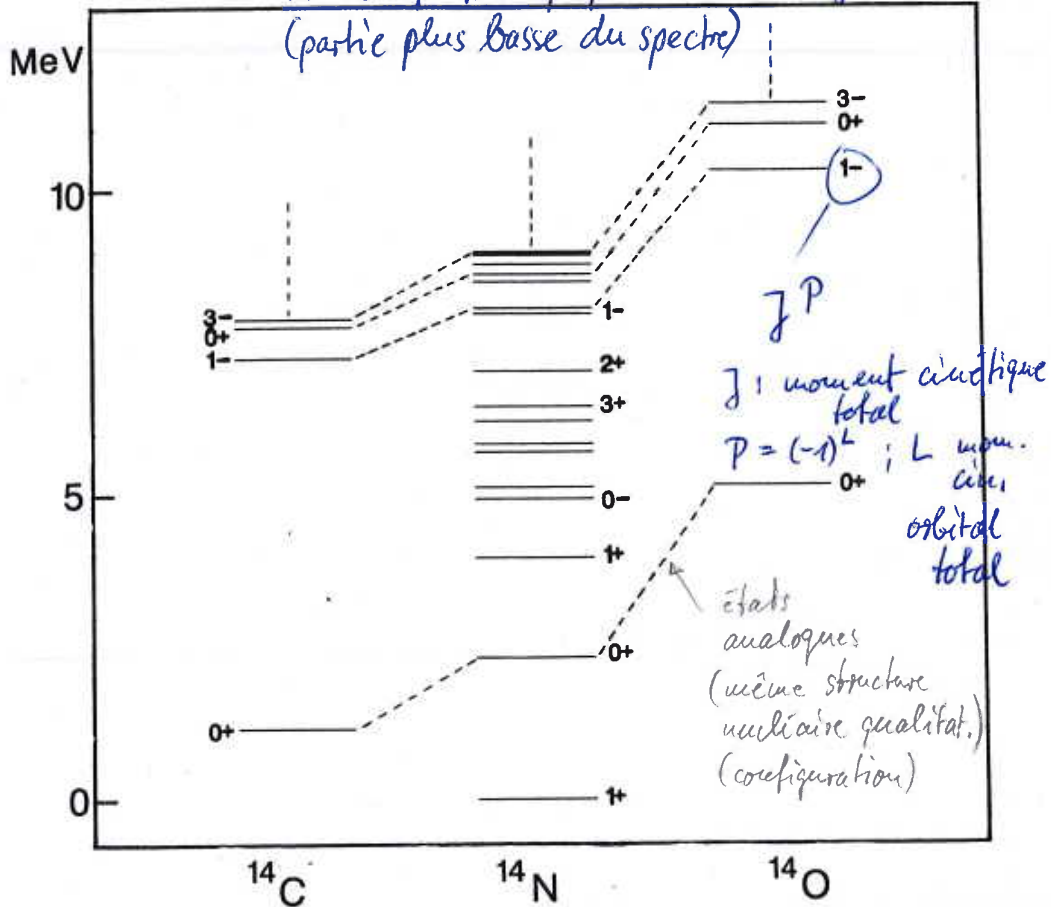 (partie plus basse du spectre)
MeV
10
5
0
3-
0+
1-
0+
1-
2+
3+
0-
1+
0+
1+
3-
0+
1-
0+
J P
J : moment cinétique
total
P = (-1)^L ; L mom.
cin.
orbital
total
états
analogues
(même structure
nucléaire qualitat.)
(configuration)
¹⁴C
¹⁴N
¹⁴O